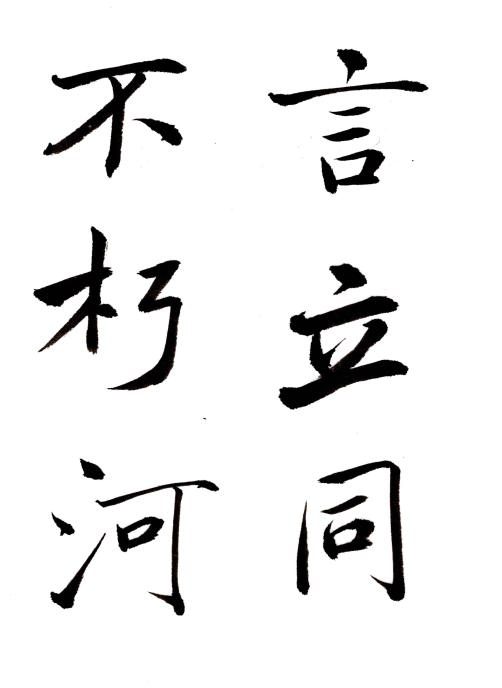 言立同
不朽河